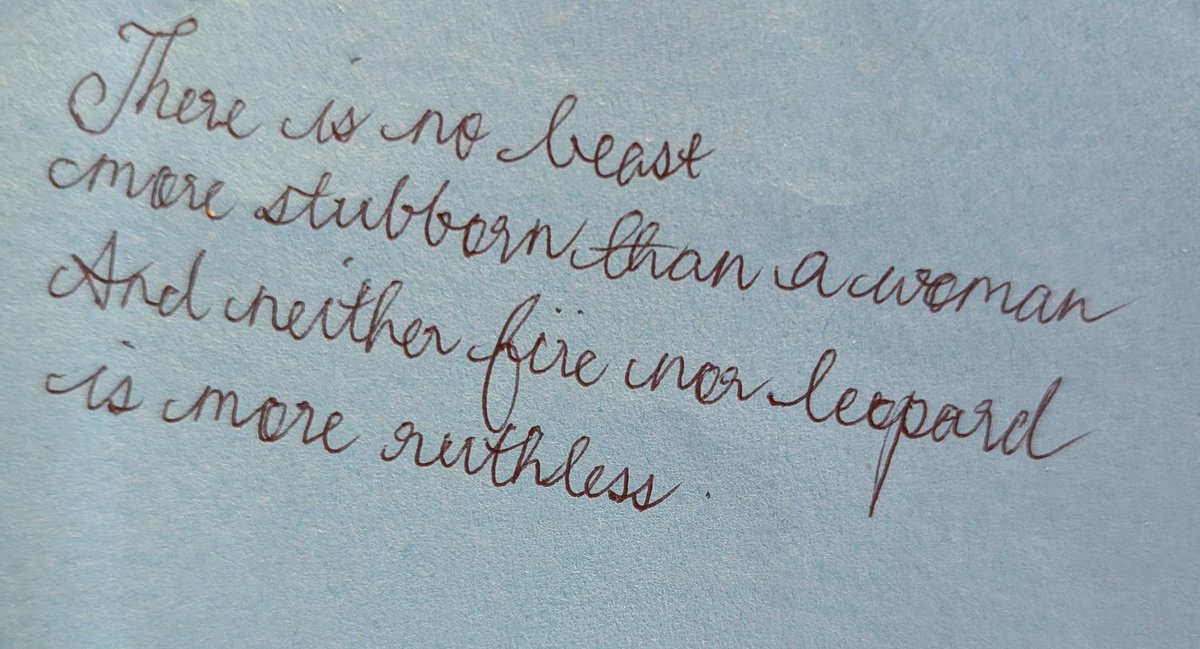 There is no beast
more stubborn than a woman
And neither fire nor leopard
is more ruthless.